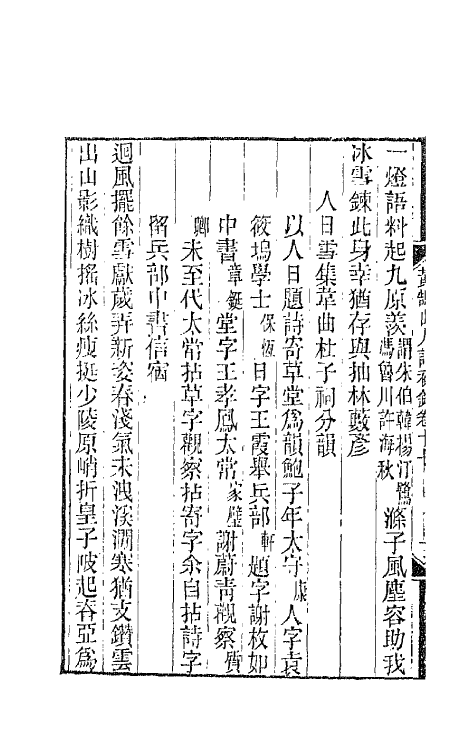 一燈語料起九原羨謂朱伯韓楊汀鷺馮魯川許海秋滌子風塵容助我
冰雪鍊此身幸猶存與抽林藪彥
人日雪集韋曲杜子祠分韻
以人日題詩寄草堂爲韻鮑子年太守康人字袁
筱塢學士保恆日字王霞舉兵部軒題字謝枚如
中書章鋌堂字王孝鳳太常家璧謝蔚青觀察質
卿未至代太常拈草字觀察拈寄字余自拈詩字
留兵部中書信宿
迴風擺餘雪獻歲弄新姿春淺氣未洩溪澗寒猶支鑽雲
出山影織樹搖冰絲瘦挺少陵原峭折皇子陂起吞亞爲